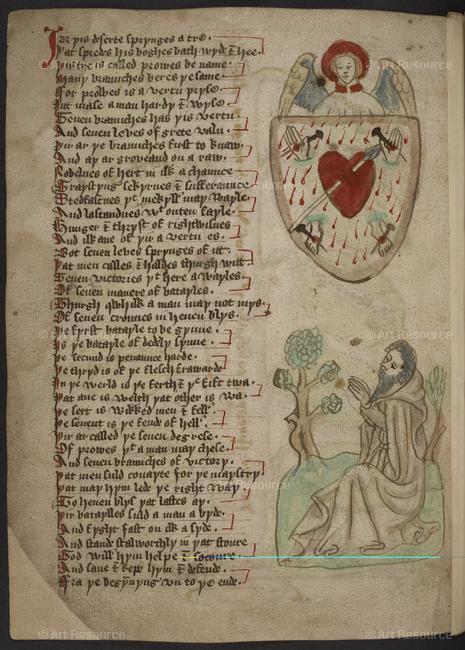 In þis deserte sprynges a tre
Þat spredes his boghes bath wyde & hee
Þis tre is called prowes be name
Many braunches beres þe same
For prowes is a vertu pryse
Þat mase a man hardy & wyse
Seuen braunches has þis vertu
And seuen leves of grete valu
Þir ar þe braunches fyrst to knaw
And ay ar groveand on a raw
of hert in ilk a chaunce
& sufferaunce
Stedfastnes þt mekyll may vayle
And lastandnes wt outen fayle
Hunger & thryst of rightwisnes
And ilk ane of þir a vertu es
Bot seuen leves sprynges of itt
Þat men calles & haldes thurgh witt
Seuen victories þt here avayles
Of seuen manere of batayles
Thurgh whilk a man may not mys
Of seuen crownes in heuen blys
Þe fyrst batayle to begynne
Is þe batayle of dedly synne
Þe secund is penaunce harde
Þe thryd is of þe flesch frawarde
In þe werld is þe ferth & þe fift twa
Þat ane is welth þat other is wa
Þe sext is wikked men & fell
Þe seuent is þe fende of hell
Þir ar called þe seuen degrese
Of prowes þt a man may chese
And seuen braunches of victory
Þat men suld couayte for þe maystry
Þat may hym lede þe right way
To heuen blys þat lastes ay
Þir batayles suld a man abyde
And fyght fast on ilk a syde
And stande stalworthly in þat stoure
God will hym helpe & socoure
And saue & kepe hym & defende
Fra þe begynnyng vn to þe ende
© Art Resource
© Art Resource
© Art Resource
© Art Resource
© Art Resource
© Art Resource